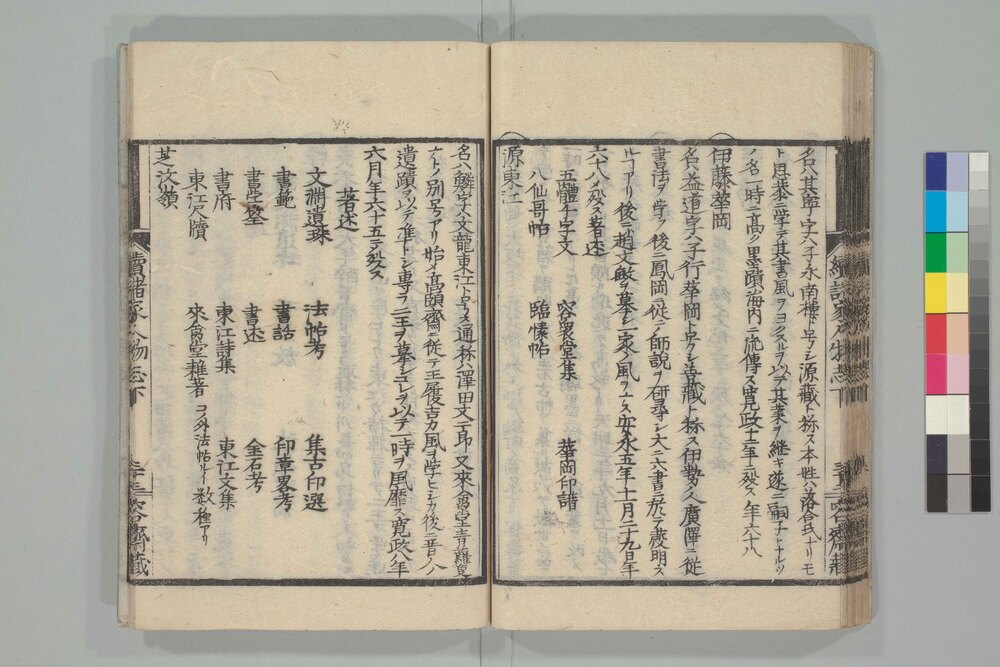 名ハ其寧字ハ子永南樓ト号シ源藏ト称ス本姓ハ落合氏ナリモ
ト恩恭ニ学テ其書風ヲヨクスルヲ以テ其業ヲ継キ遂ニ嗣子トナルソ
ノ名一時ニ高ク墨蹟海内ニ流傳ス寛政十二年ニ殁ス年六十八
伊藤華岡
名ハ益道字ハ子行華岡ト号シ善藏ト称ス伊勢ノ人廣澤ニ従
書法ヲ学ヲ後ニ鳳岡ニ従ニ師説ヲ研尋シ大ニ六書ニ於テ発明ス
ルコアリ後ニ趙文敏ヲ摹シ一家ノ風ヲナス安永五年十一月二十九日年
六十八ノ殁ス著述
五體千字文
容衆堂集
華岡印譜
八仙哥帖
臨懐帖
源東江
名ハ鱗字ハ文龍東江ト号ス通称ハ澤田文二郎又來禽堂青蘿館
ナトノ別号アリ始メ高頤齋ニ従テ王履吉カ風ヲ学ヒシカ後ニ晋ノ人
遺蹟ヲ以テ準トシ専ラ二王ヲ摹シコレヲ以テ一時ヲ風靡ス寛政八年
六月年六十五ニテ殁ス
著述
文淵遺珠
法帖考
集古印選
書範
書話
印章畧考
書学筌
書述
金石考
書府
東江詩集
東江文集
東江尺牘
來禽堂雜著
コノ外法帖ルイ数種アリ
芝汶嶺
續諸家人物志下